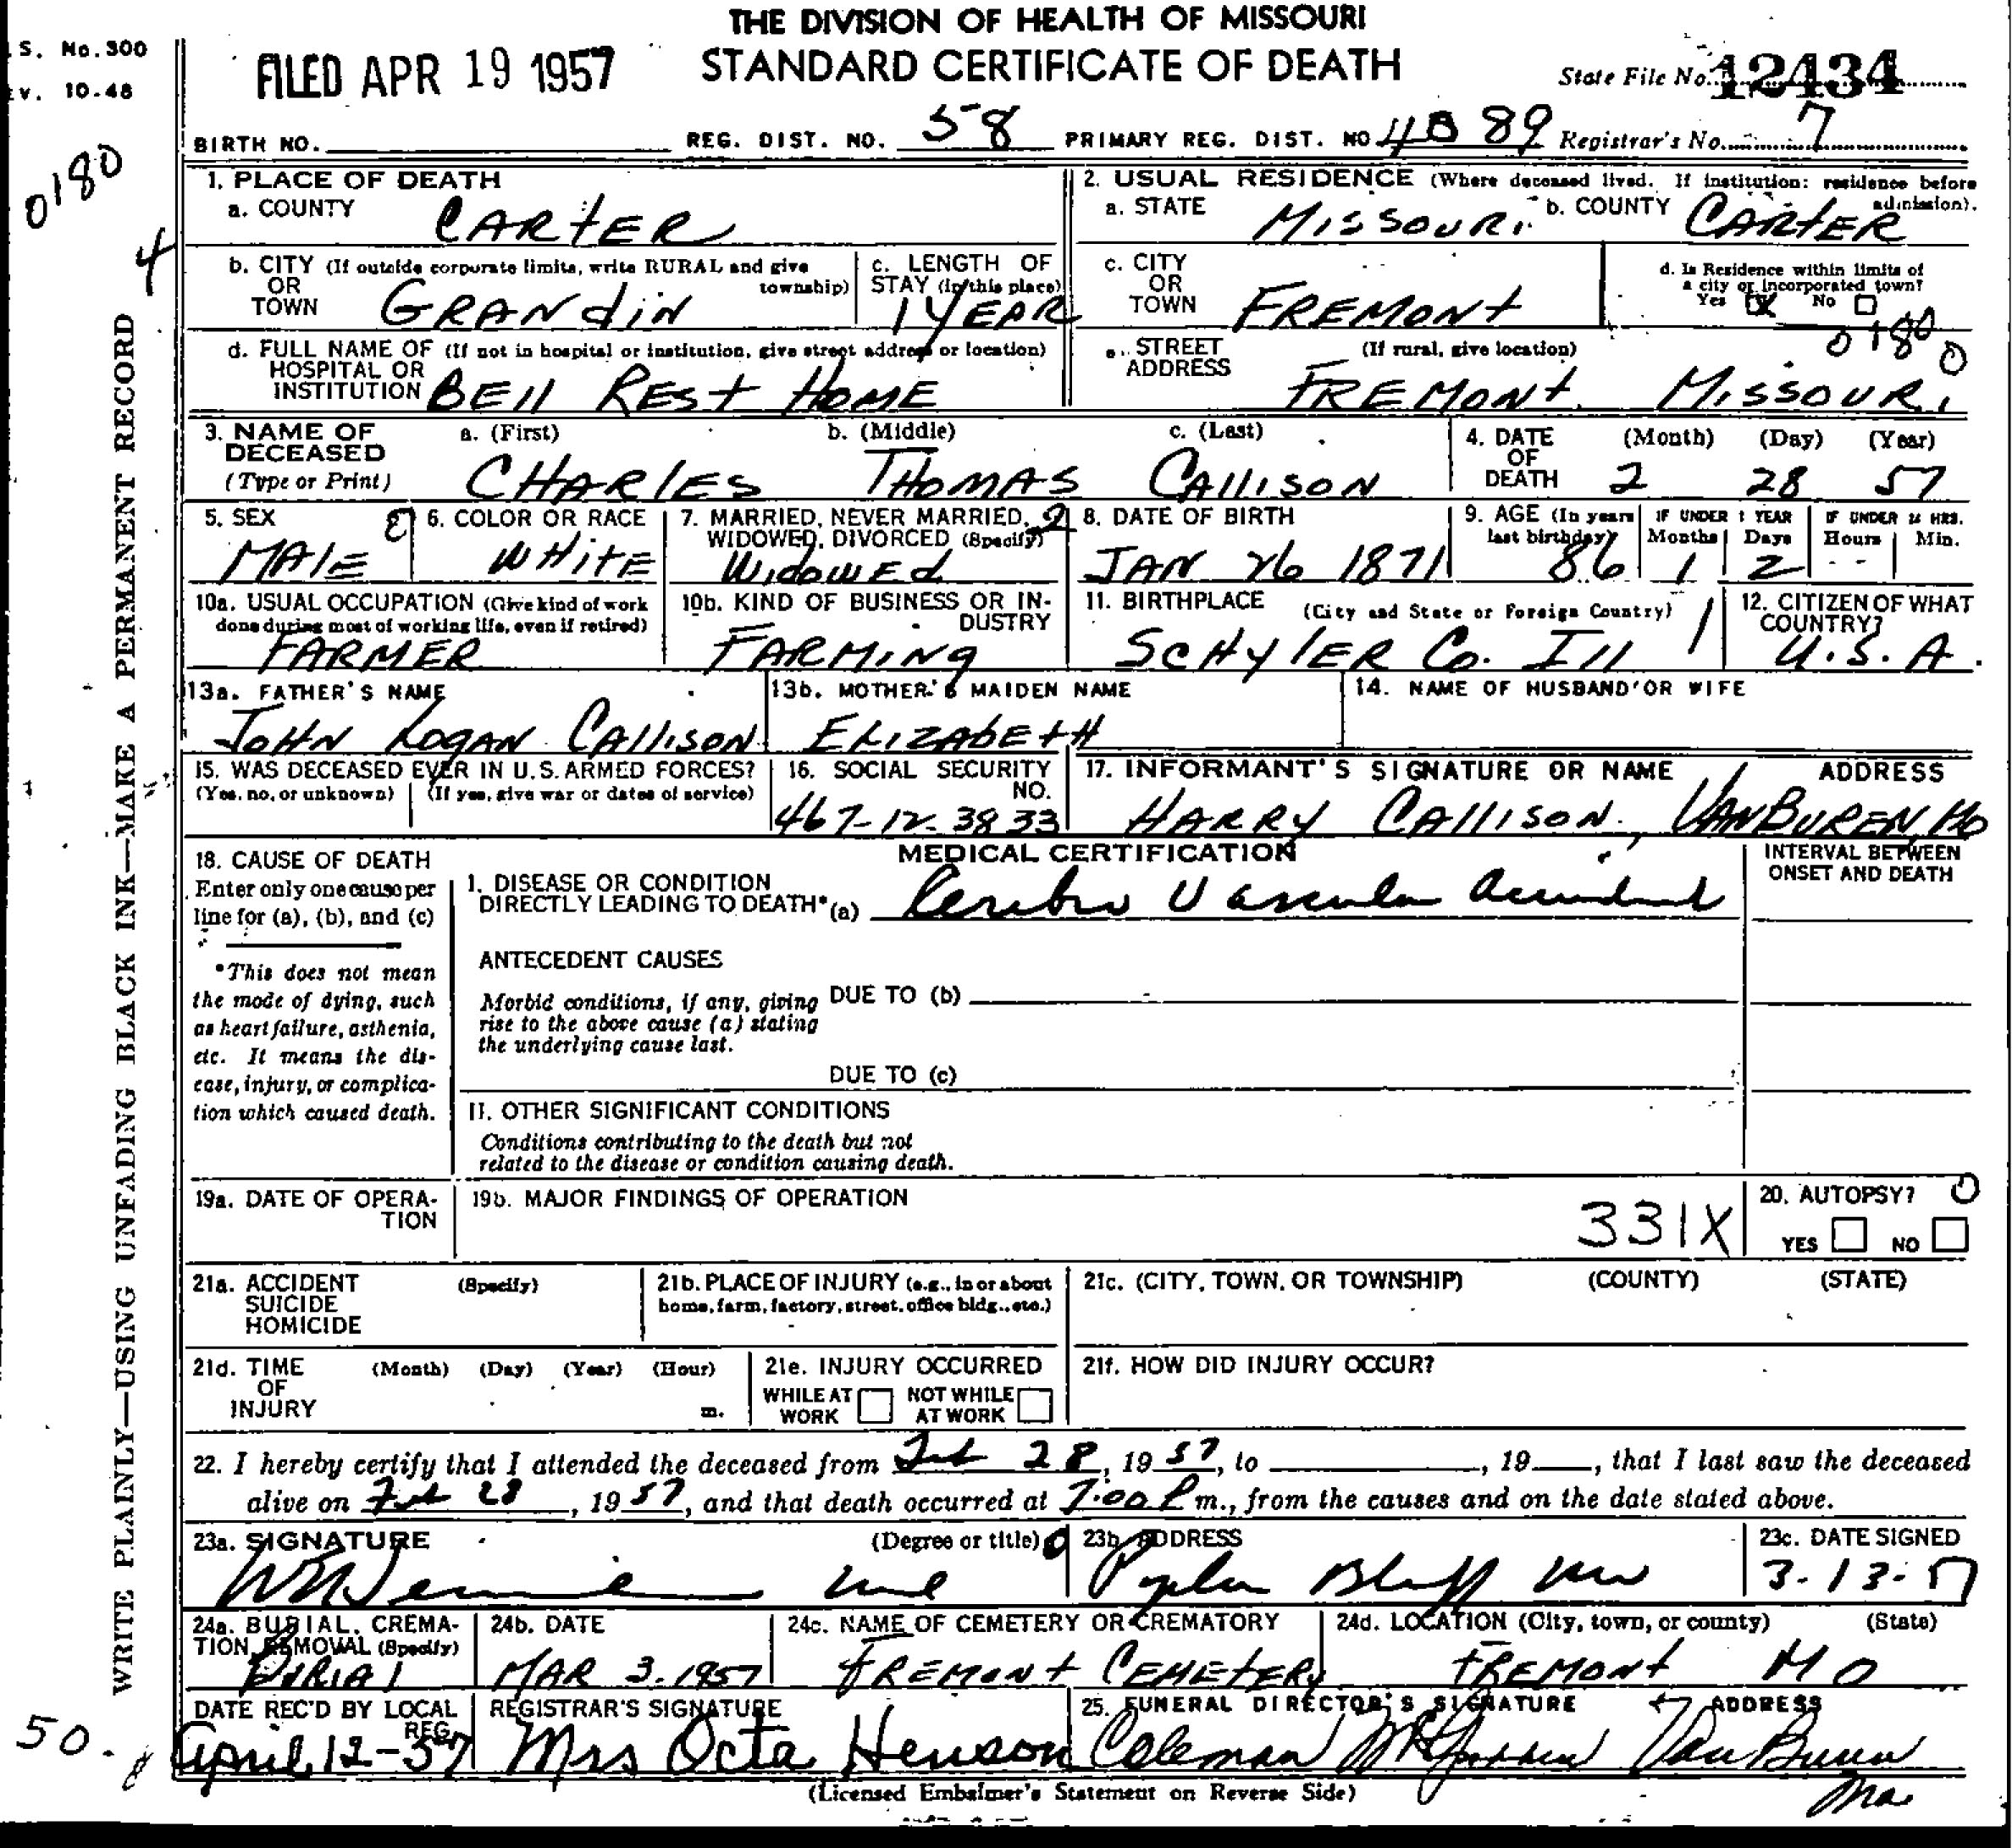 THE DIVISION OF HEALTH OF MISSOURI
STANDARD CERTIFICATE OF DEATH
S. No. 300
v. 10-48
FILED APR 19 1957
State File No. 12434
BIRTH NO. REG. DIST. NO. 58 PRIMARY REG. DIST. NO. Registrar's No. 7
0180
4
WRITE PLAINLY—USING UNFADING BLACK INK—MAKE A PERMANENT RECORD
1. PLACE OF DEATH
a. COUNTY CARTER
2. USUAL RESIDENCE (Where deceased lived. If institution: residence before admission).
a. STATE MISSOURI b. COUNTY CARTER
b. CITY (If outside corporate limits, write RURAL and give township)
OR
TOWN GRANdiN
c. LENGTH OF STAY (in this place)
1 YEAR
c. CITY
OR
TOWN FREMONt
d. Is Residence within limits of a city or incorporated town?
Yes X No
0180 0
d. FULL NAME OF (If not in hospital or institution, give street address or location)
HOSPITAL OR
INSTITUTION BEll REst HOME
e. STREET (If rural, give location)
ADDRESS FREMONt MISSOURI
3. NAME OF DECEASED
(Type or Print)
a. (First) b. (Middle) c. (Last)
CHARlES THOMAS CAllISON
4. DATE OF DEATH (Month) (Day) (Year)
2 28 57
5. SEX
MAlE
6. COLOR OR RACE
WHitE
7. MARRIED, NEVER MARRIED, WIDOWED, DIVORCED (Specify) 2
WidowEd
8. DATE OF BIRTH
JAN 26 1871
9. AGE (In years last birthday) 86
IF UNDER 1 YEAR Months 1 Days 2
IF UNDER 24 HRS. Hours Min.
10a. USUAL OCCUPATION (Give kind of work done during most of working life, even if retired)
FARMER
10b. KIND OF BUSINESS OR INDUSTRY
FARMiNg
11. BIRTHPLACE (City and State or Foreign Country)
SCHYlER Co. Ill
12. CITIZEN OF WHAT COUNTRY?
U.S.A.
13a. FATHER'S NAME
JOHN LOGAN CAllISON
13b. MOTHER'S MAIDEN NAME
ELIZABEtH
14. NAME OF HUSBAND OR WIFE
15. WAS DECEASED EVER IN U.S. ARMED FORCES?
(Yes, no, or unknown) (If yes, give war or dates of service)
16. SOCIAL SECURITY NO.
467-12-3833
17. INFORMANT'S SIGNATURE OR NAME ADDRESS
HARRY CAllISON, VANBUREN, MO
MEDICAL CERTIFICATION
18. CAUSE OF DEATH
Enter only one cause per line for (a), (b), and (c)
*This does not mean the mode of dying, such as heart failure, asthenia, etc. It means the disease, injury, or complication which caused death.
I. DISEASE OR CONDITION
DIRECTLY LEADING TO DEATH* (a) Cerebro Vascular Accident
INTERVAL BETWEEN ONSET AND DEATH
ANTECEDENT CAUSES
Morbid conditions, if any, giving rise to the above cause (a) stating the underlying cause last.
DUE TO (b)
DUE TO (c)
II. OTHER SIGNIFICANT CONDITIONS
Conditions contributing to the death but not related to the disease or condition causing death.
19a. DATE OF OPERATION
19b. MAJOR FINDINGS OF OPERATION
331X
20. AUTOPSY? 0
YES NO
21a. ACCIDENT (Specify)
SUICIDE
HOMICIDE
21b. PLACE OF INJURY (e.g., in or about home, farm, factory, street, office bldg., etc.)
21c. (CITY, TOWN, OR TOWNSHIP) (COUNTY) (STATE)
21d. TIME OF INJURY (Month) (Day) (Year) (Hour) m.
21e. INJURY OCCURRED
WHILE AT WORK NOT WHILE AT WORK
21f. HOW DID INJURY OCCUR?
22. I hereby certify that I attended the deceased from Feb 28, 1957, to , 19 , that I last saw the deceased
alive on Feb 28, 1957, and that death occurred at 7:00 P m., from the causes and on the date stated above.
23a. SIGNATURE (Degree or title)
23b. ADDRESS
Poplar Bluff Mo
23c. DATE SIGNED
3-13-57
24a. BURIAL, CREMATION, REMOVAL (Specify)
BURIAl
24b. DATE
MAR 3, 1957
24c. NAME OF CEMETERY OR CREMATORY
FREMONt CEMEtERy
24d. LOCATION (City, town, or county) (State)
FREMONt MO
DATE REC'D BY LOCAL REG.
April 12-57
REGISTRAR'S SIGNATURE
Mrs Octa Henson
25. FUNERAL DIRECTOR'S SIGNATURE ADDRESS
Coleman Van Buren Mo
(Licensed Embalmer's Statement on Reverse Side)
50.